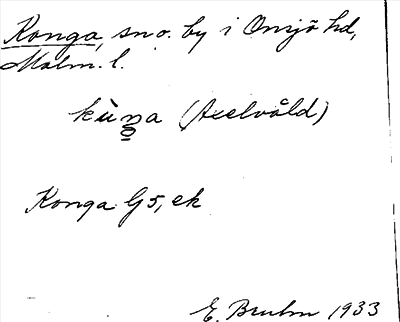 Konga, sn o. by i Onsjö hd,
Malm. l.
kùṉa (Axelvåld)
Konga G5, ek
E. Bruhn 1933